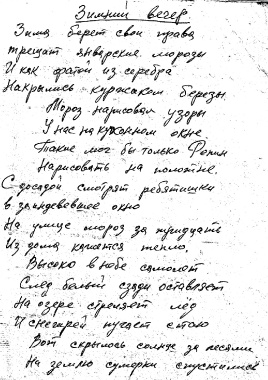 Зимний вечер
Зима берет свои права
трещат январские морозы
И как фатой из серебра
Накрылись куржаком березы.
Мороз нарисовал узоры
У нас на кухонном окне
Такие мог бы только Фомин
Нарисовать на полотне.
С досадой смотрят ребятишки
в заиндевевшее окно
На улице мороз за тридцать
Из дома катится тепло,
Высоко в небе самолет
След белый сзади оставляет
На озере стреляет лёд
И снегирей пугает стаю
Вот скрылось солнце за лесами
На землю сумерки спустились